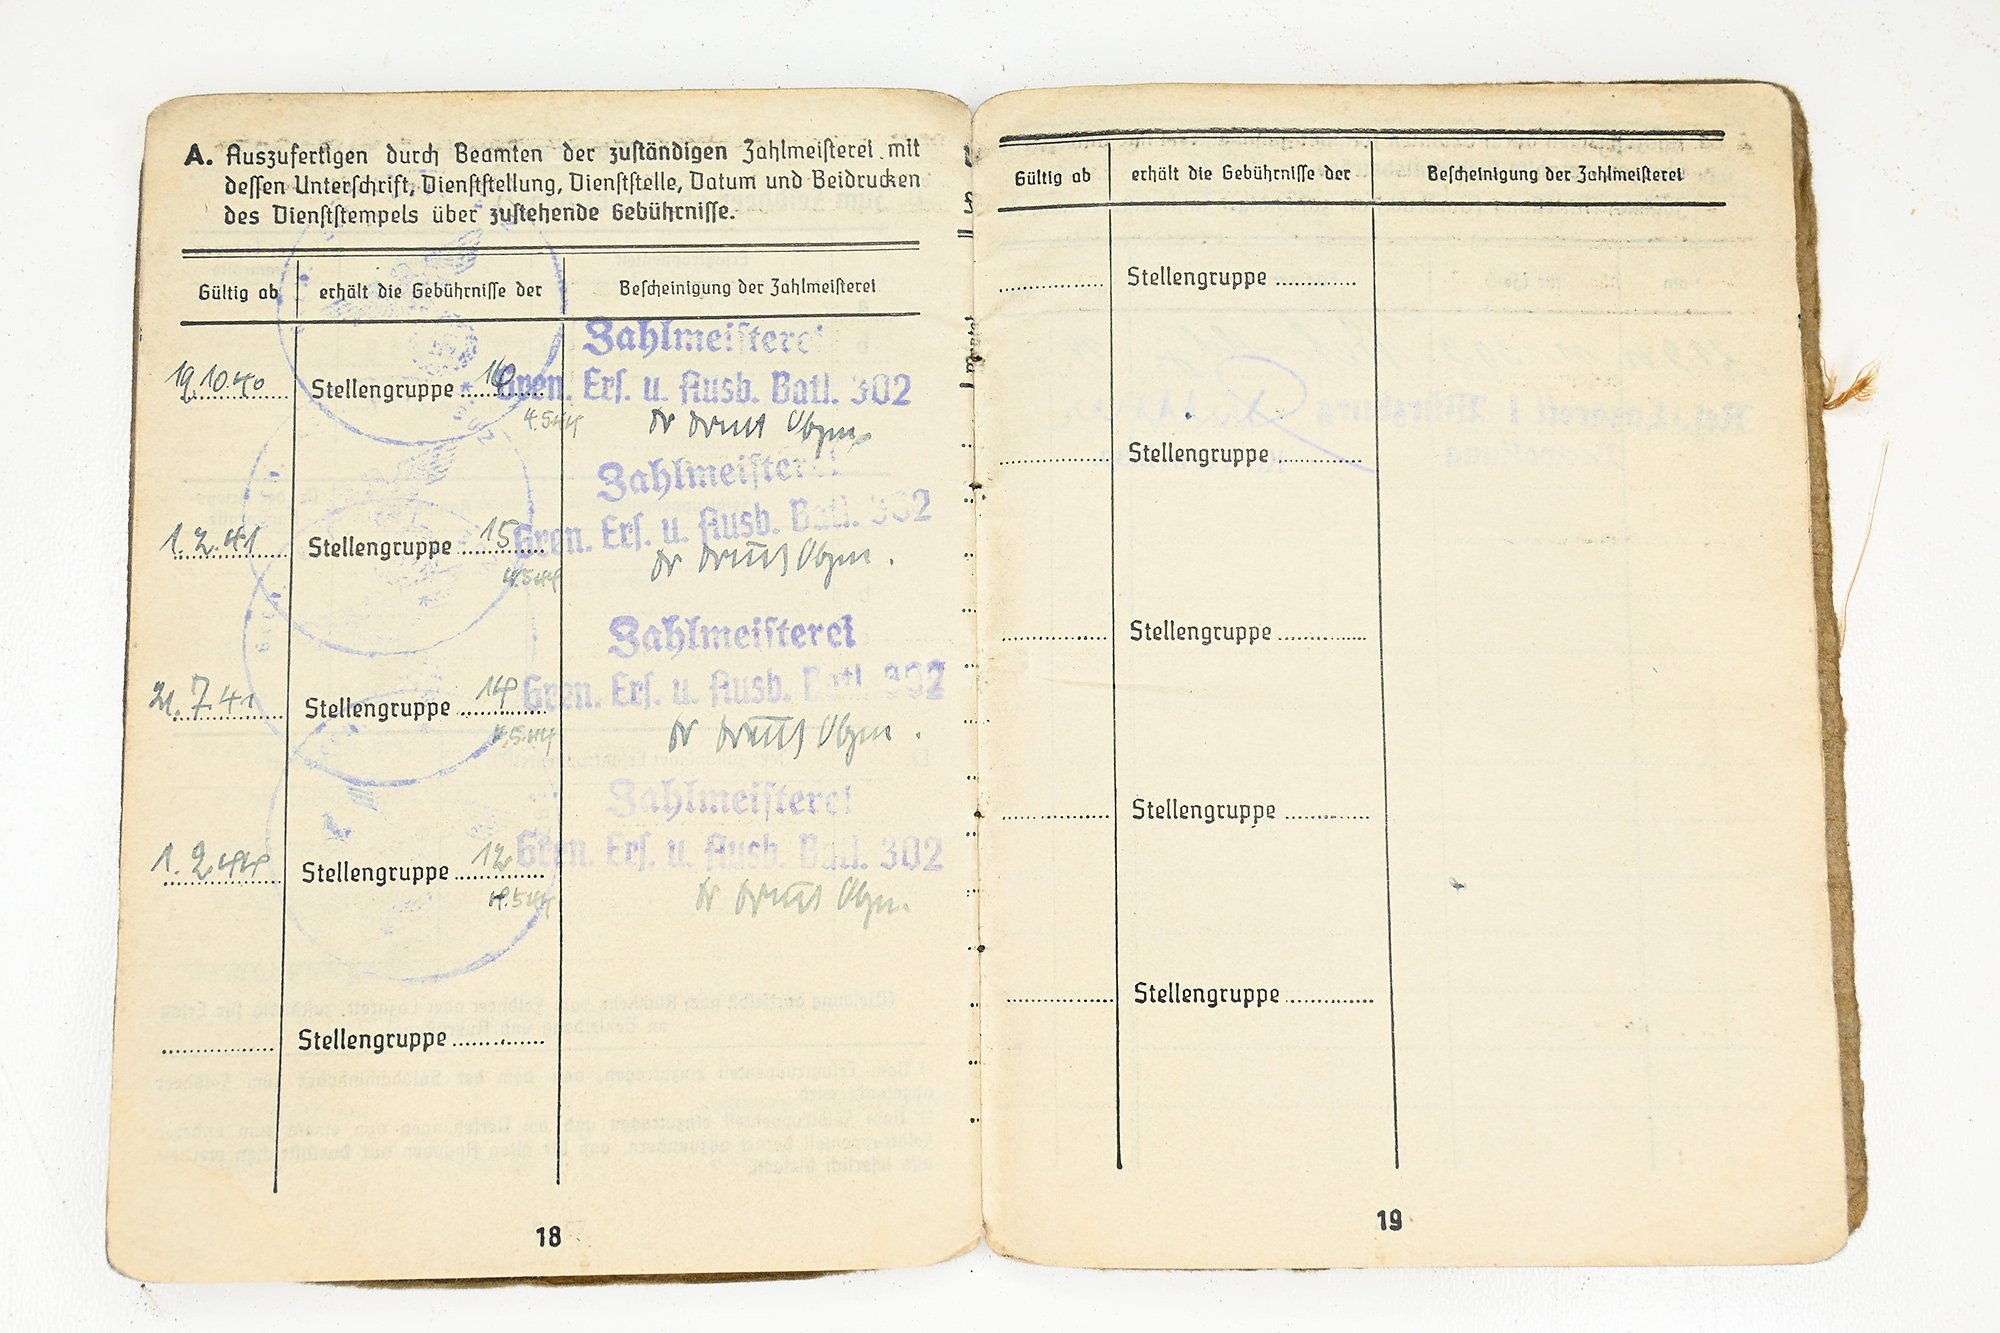 A. Auszufertigen durch Beamten der zuständigen Zahlmeisterei mit
dessen Unterschrift, Dienststellung, Dienststelle, Datum und Beidrucken
des Dienststempels über zustehende Gebührnisse.
Gültig ab erhält die Gebührnisse der Bescheinigung der Zahlmeisterei
Zahlmeisterei
19.10.40 Stellengruppe 16 Gren. Ers. u. Ausb. Batl. 302
4.5.44
Zahlmeisterei
1.2.41 Stellengruppe 15 Gren. Ers. u. Ausb. Batl. 302
4.5.44
Zahlmeisterei
21.7.41 Stellengruppe 14 Gren. Ers. u. Ausb. Batl. 302
4.5.44
Zahlmeisterei
1.2.44 Stellengruppe 12 Gren. Ers. u. Ausb. Batl. 302
4.5.44
Stellengruppe
18
Gültig ab erhält die Gebührnisse der Bescheinigung der Zahlmeisterei
Stellengruppe
Stellengruppe
Stellengruppe
Stellengruppe
Stellengruppe
19